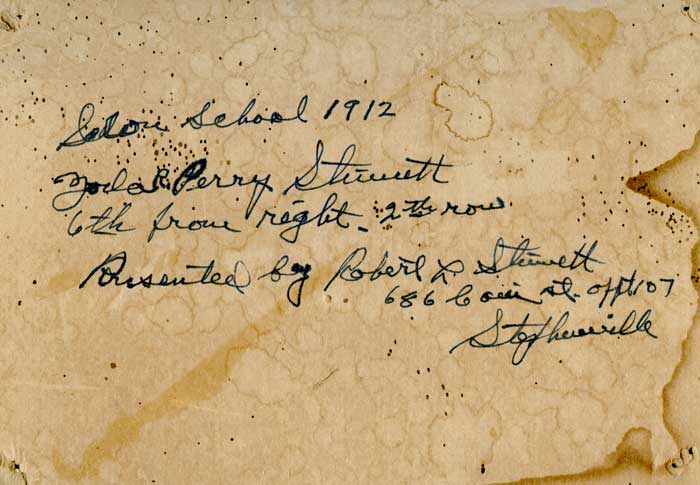 School 1912
Perry Stewett
6th from right - 2th row
Presented by Robert L Stewett
686 Coin st. appt 107
Stephenville